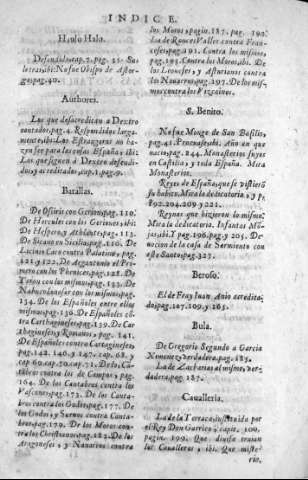 INDICE.
Hauso Halo.
Defendido, cap. 7. pag. 35. Sus
letras, ibi: No fue Obispo de Astor-
ga, pag. 40.
Authores.
Los que desacreditan a Dextro
contados, pag. 4. Respondidos larga-
mente, ibi: Los Estrangeros no ha-
zen fee para las cosas de España, ibi:
Los que siguen a Dextro defendi-
dos, y acreditados, cap. 1. pag. 9.
Batallas.
De Osiris con Gerion, pag. 110.
De Hercules con los Geriones, ibi:
De Hespero, y Athlante, pag. 113.
De Sicano en Sicilia, pag. 116. De
Licinio Caco contra Palatuo, pag.
121. y 122. De Argantonio el Pri-
mero con los Phenices, pag. 128. De
Tirios con los mismos, pag. 133. De
Nabucodonosor con los mismos, pag.
134. De los Españoles entre ellos
mismos, pag. 136. De Españoles cō-
tra Carthagineses, pag. 139. De Car-
thagineses, y Romanos, pag. 141.
De Españoles contra Cartagineses
pag. 142. 146. y 147. cap. 68. y
cap. 69. cap. 70. cap. 71. De los Cā-
tabros contra los de Campos, pag.
164. De los Cantabros contra los
Vascones, pag. 173. De los Canta-
bros contra los Godos, pag. 177. De
los Godos, y Suevos contra Canta-
bros, pag. 179. De los Moros con-
tra los Christianos, pag. 183. De los
Aragoneses, y Navarros contra
los Moros, pagin. 187. pag. 190.
La de Ronces Valles contra Fran-
ceses, pag. 191. Contra los mismos,
pag. 195. Contra los Moros, ibi. De
los Leoneses, y Asturianos contra
los Navarros, pag. 197. De los mis-
mos contra los Vizcainos.
S. Benito.
No fue Monge de San Basilio,
pag. 41. Provase, ibi: Año en que
nacio, pag. 244. Monasterios suyos
en Castilla, y toda España. Mira
Monasterios.
Reyes de España, que se vistieron
su habito. Mira la dedicatoria, y P.
192. 204. 209. y 221.
Reynas que hizieron lo mismo:
Mira la dedicatoria. Infantas Mō-
jas, ibi. Y pag. 196. pag. y 205. De-
nocion de la casa de Sarmiento con
este Santo, pag. 327.
Beroso.
El de Fray Juan Anio acredita-
do, pag. 107. 109. y 265.
Bula.
De Gregorio Segundo a Garcia
Ximenez verdadera, pag. 185.
La de Zacharias al mismo, ver-
dadera, pag. 187.
Cavalleria.
La de la Terraça, instituida por
el Rey Don Garcia, capit. 100.
pagin. 199. Que divisa traian
los Cavalleros, ibi. Que miste-
rio,